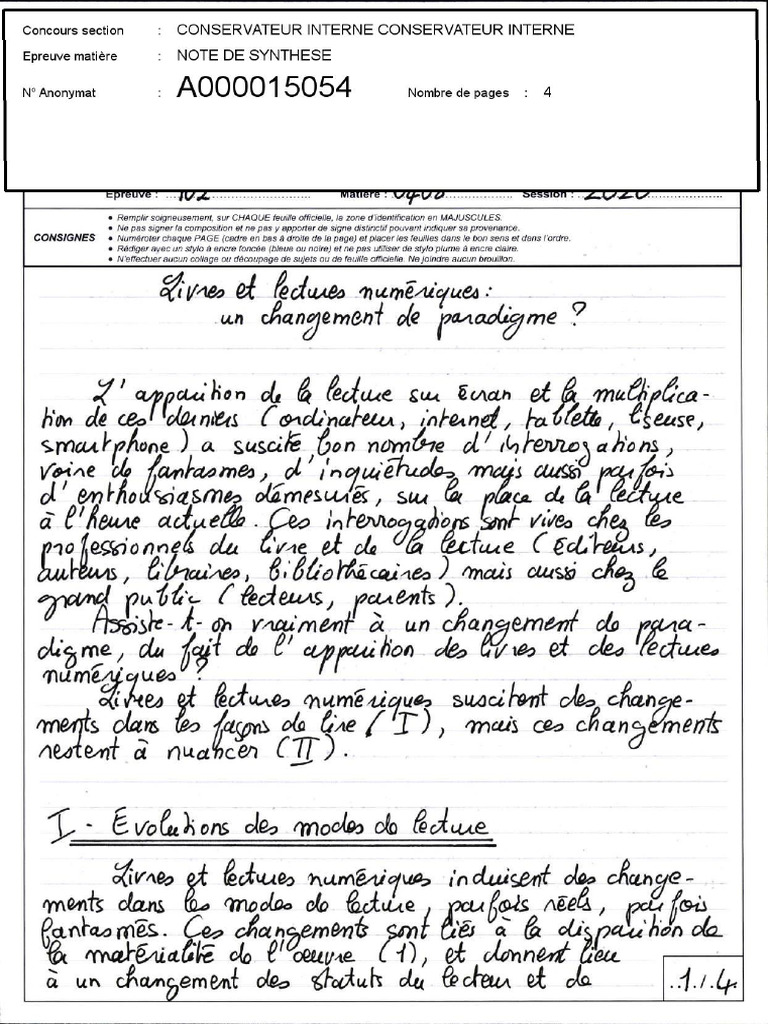 Concours section : CONSERVATEUR INTERNE CONSERVATEUR INTERNE
Epreuve matière : NOTE DE SYNTHESE
N° Anonymat : A000015054 Nombre de pages : 4
Epreuve : 102 Matière : 0408 Session : 2020
CONSIGNES
• Remplir soigneusement, sur CHAQUE feuille officielle, la zone d'identification en MAJUSCULES.
• Ne pas signer la composition et ne pas y apporter de signe distinctif pouvant indiquer sa provenance.
• Numéroter chaque PAGE (cadre en bas à droite de la page) et placer les feuilles dans le bon sens et dans l'ordre.
• Rédiger avec un stylo à encre foncée (bleue ou noire) et ne pas utiliser de stylo plume à encre claire.
• N'effectuer aucun collage ou découpage de sujets ou de feuille officielle. Ne joindre aucun brouillon.
Livres et lectures numériques :
un changement de paradigme ?
L'apparition de la lecture sur écran et la multiplica-
tion de ces derniers (ordinateur, internet, tablette, liseuse,
smartphone) a suscité bon nombre d'interrogations,
voire de fantasmes, d'inquiétudes mais aussi parfois
d'enthousiasmes démesurés, sur la place de la lecture
à l'heure actuelle. Ces interrogations sont vives chez les
professionnels du livre et de la lecture (éditeurs,
auteurs, libraires, bibliothécaires) mais aussi chez le
grand public (lecteurs, parents).
Assiste-t-on vraiment à un changement de para-
digme, du fait de l'apparition des livres et des lectures
numériques ?
Livres et lectures numériques suscitent des change-
ments dans les façons de lire (I), mais ces changements
restent à nuancer (II).
I - Évolutions des modes de lecture
Livres et lectures numériques induisent des change-
ments dans les modes de lecture, parfois réels, parfois
fantasmés. Ces changements sont liés à la disparition de
la matérialité de l'œuvre (1), et donnent lieu
à un changement des statuts du lecteur et de
1 / 4